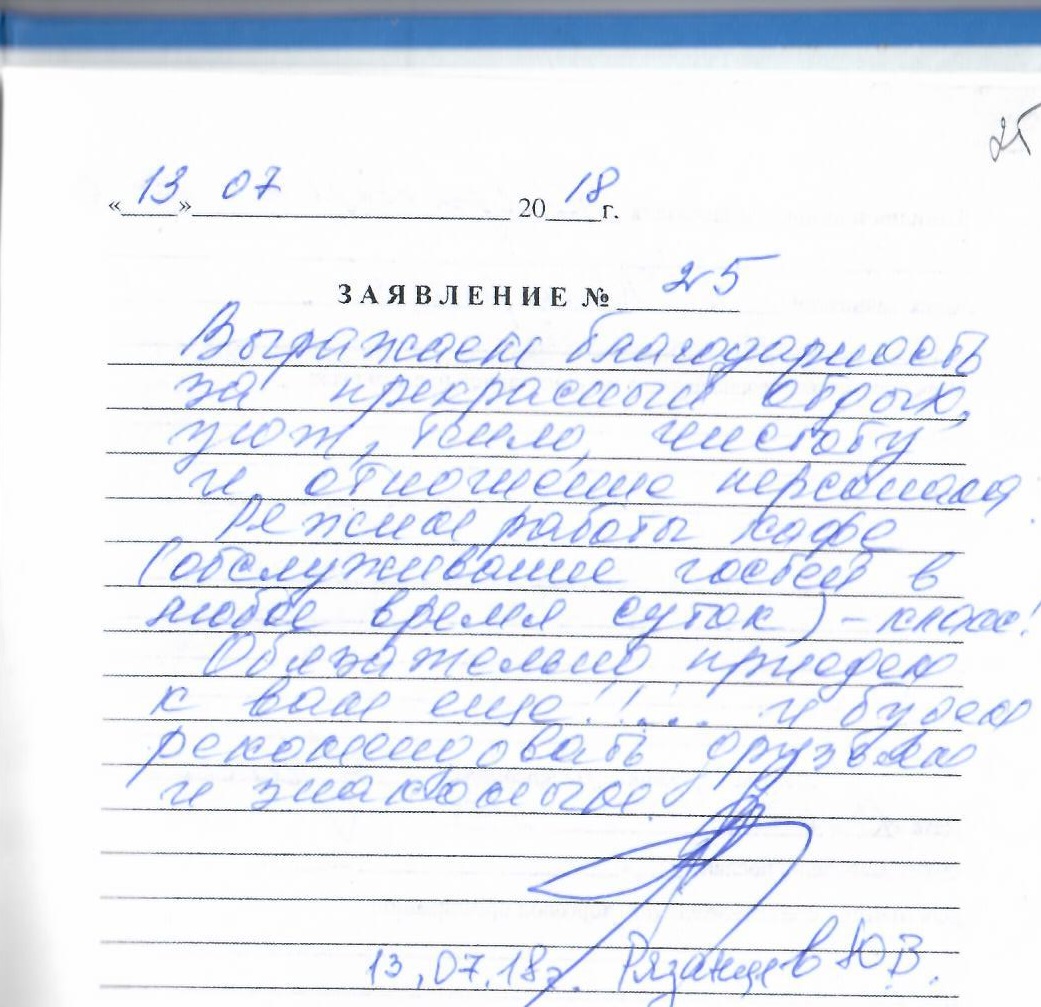 25
«13» 07 2018г.
ЗАЯВЛЕНИЕ № 25
Выражаем благодарность
за прекрасный отдых,
уют, тепло, чистоту
и отношение персонала.
Режим работы кафе
(обслуживание гостей в
любое время суток) – класс!
Обязательно приедем
к вам еще!!... и будем
рекомендовать друзьям
и знакомым.
13.07.18г. Рязанцев Ю.В.